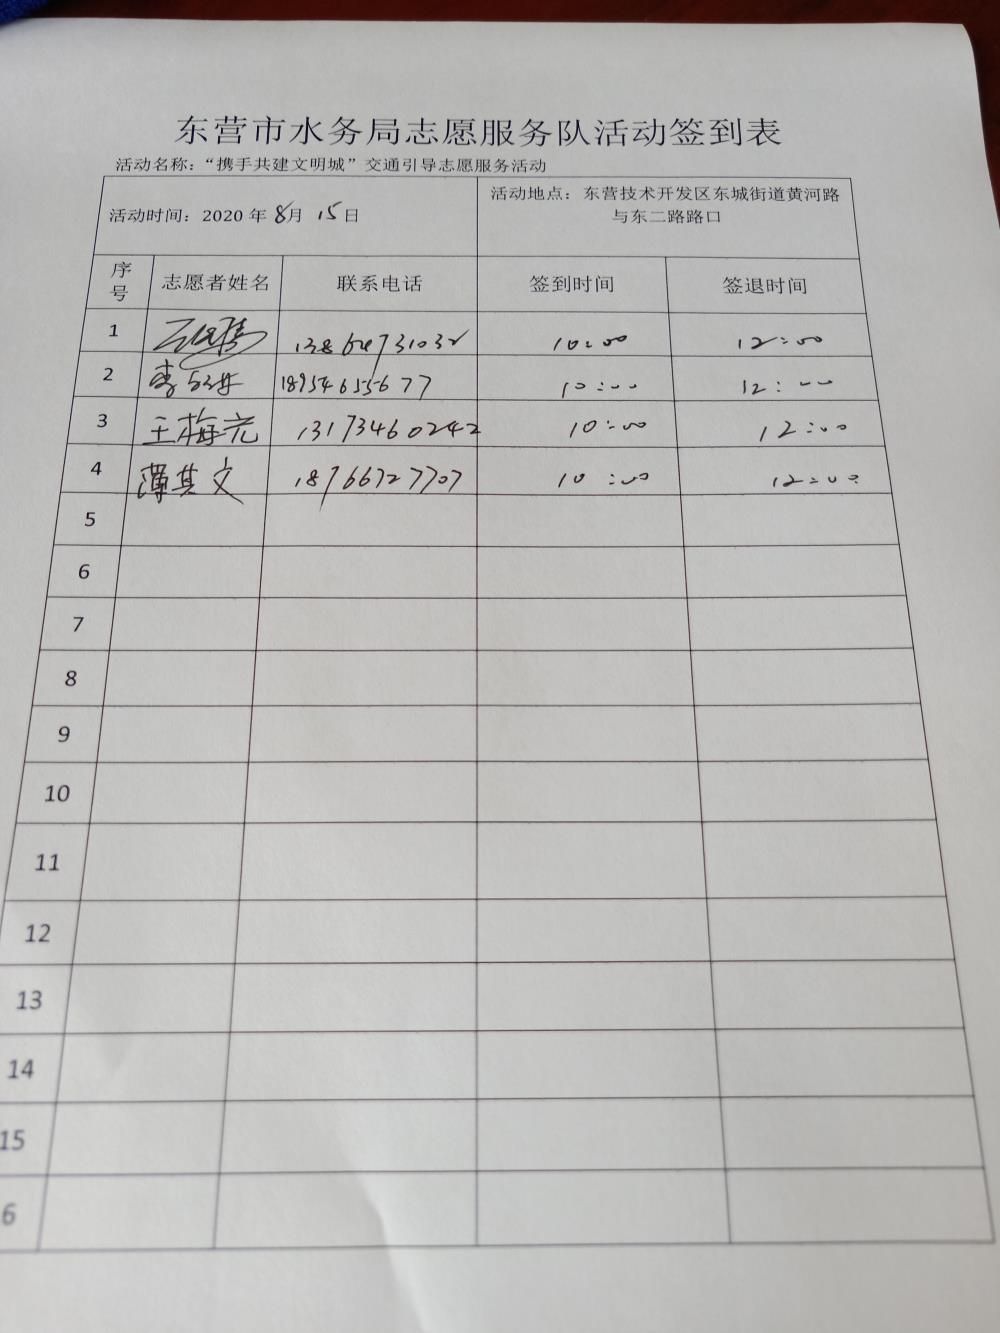 东营市水务局志愿服务队活动签到表
活动名称：“携手共建文明城”交通引导志愿服务活动
活动时间：2020 年 8月 15日
活动地点：东营技术开发区东城街道黄河路
与东二路路口
序号 志愿者姓名 联系电话 签到时间 签退时间
1 13864731032 10:00 12:00
2 18954655677 10:00 12:00
3 王梅亮 13173460242 10:00 12:00
4 薄其文 18766727707 10:00 12:00
5
6
7
8
9
10
11
12
13
14
15
6